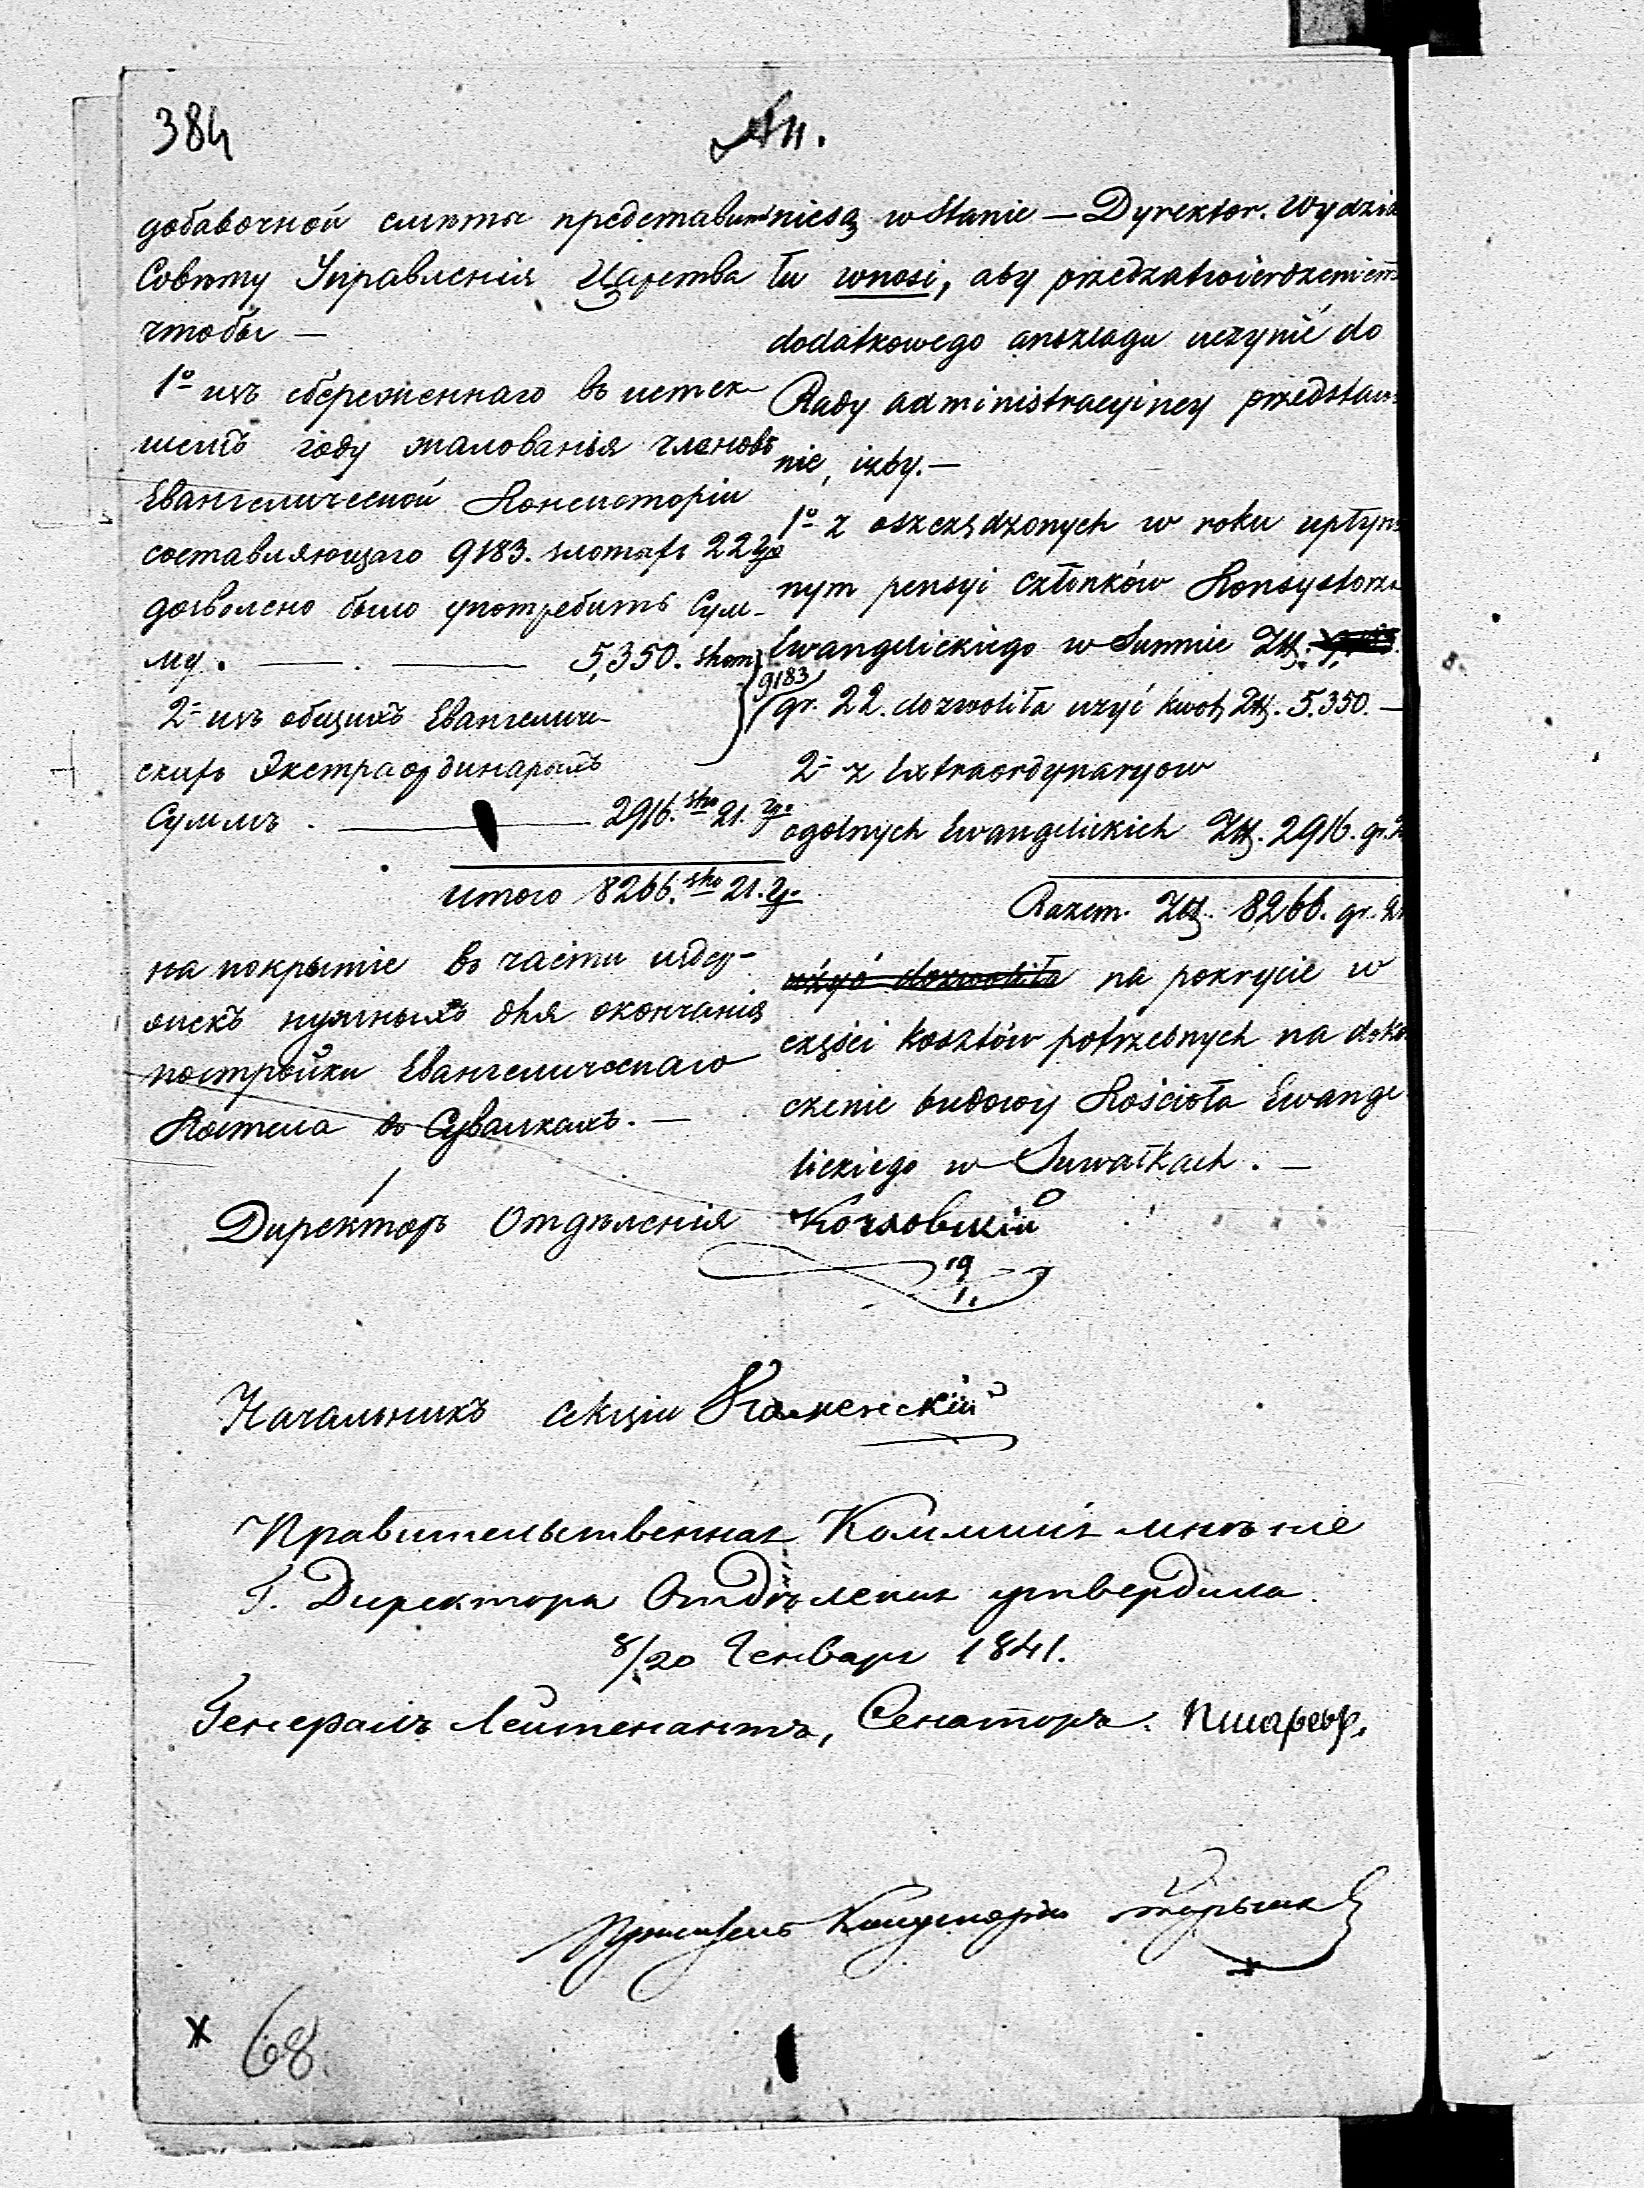 384
добавочной смѣты представить
Совѣту Управленія Царства
чтобы —
1º изъ сбереженнаго въ истек-
шемъ году жалованья членовъ
Евангелической Консисторіи
составляющаго 9183. злотыхъ 22 гр
дозволено было употребить Сум-
му. — . — 5,350. злот
2º изъ общихъ Евангеличе-
скихъ Экстраординарныхъ
Суммъ . — 2916. зло 21. гр.
итого 8266. зло 21. г.
на покрытіе въ части издер-
жекъ нужныхъ для окончанія
постройки Евангелическаго
Костела въ Сувалкахъ. —
niesą w Stanie — Dyrektor. Wydzia
łu wnosi, aby przedzatwierdzeniem
dodatkowego anszlagu uczynić do
Rady administracyiney przedstaw
nie, iżby. —
1º z oszczędzonych w roku upłyn
nym pensyi członków Konsystorza
Ewangelickiego w Summie Złp.
9183
gr. 22. dozwoliła użyć kwotę Złp. 5.350. —
2º z Extraordynaryow
ogolnych Ewangelickich Złp. 2916. gr. 2
Razem. Złp. 8266. gr. 21
użyć dozwoliła na pokrycie w
części kosztów potrzebnych na doko
czenie budowy Kościoła Ewange
lickiego w Suwałkach. —
Директоръ Отдѣленія Козловскій
19
1.
Начальникъ секціи Каменскій
Правительственная Коммиія мнѣніе
Г. Директора Отдѣленія утвердила.
8/20 Генваря 1841.
Генералъ Лейтенантъ, Сенаторъ. Писаревъ.
Правитель Канцеляріи
68.